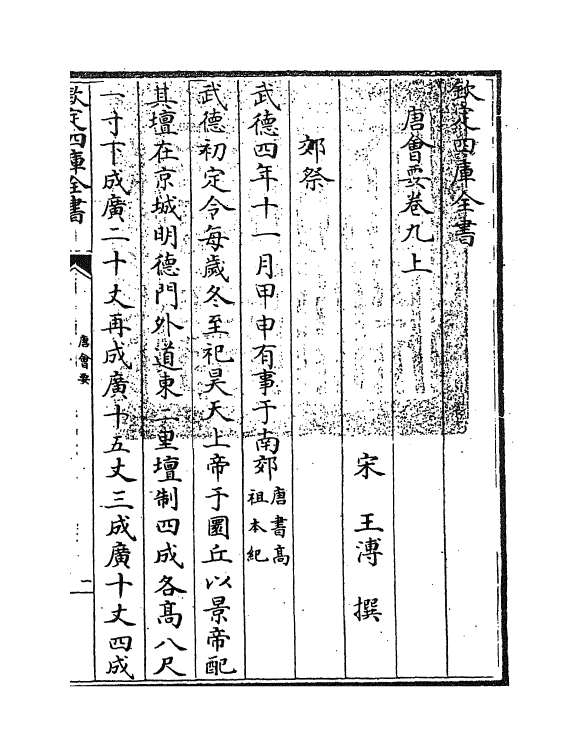 欽定四庫全書
唐會要卷九上
宋 王溥 撰
郊祭
武德四年十一月甲申有事于南郊唐書高祖本紀
武德初定令每歲冬至祀昊天上帝于圜丘以景帝配
其壇在京城明德門外道東二里壇制四成各高八尺
一寸下成廣二十丈再成廣十五丈三成廣十丈四成
欽定四庫全書
唐會要
一